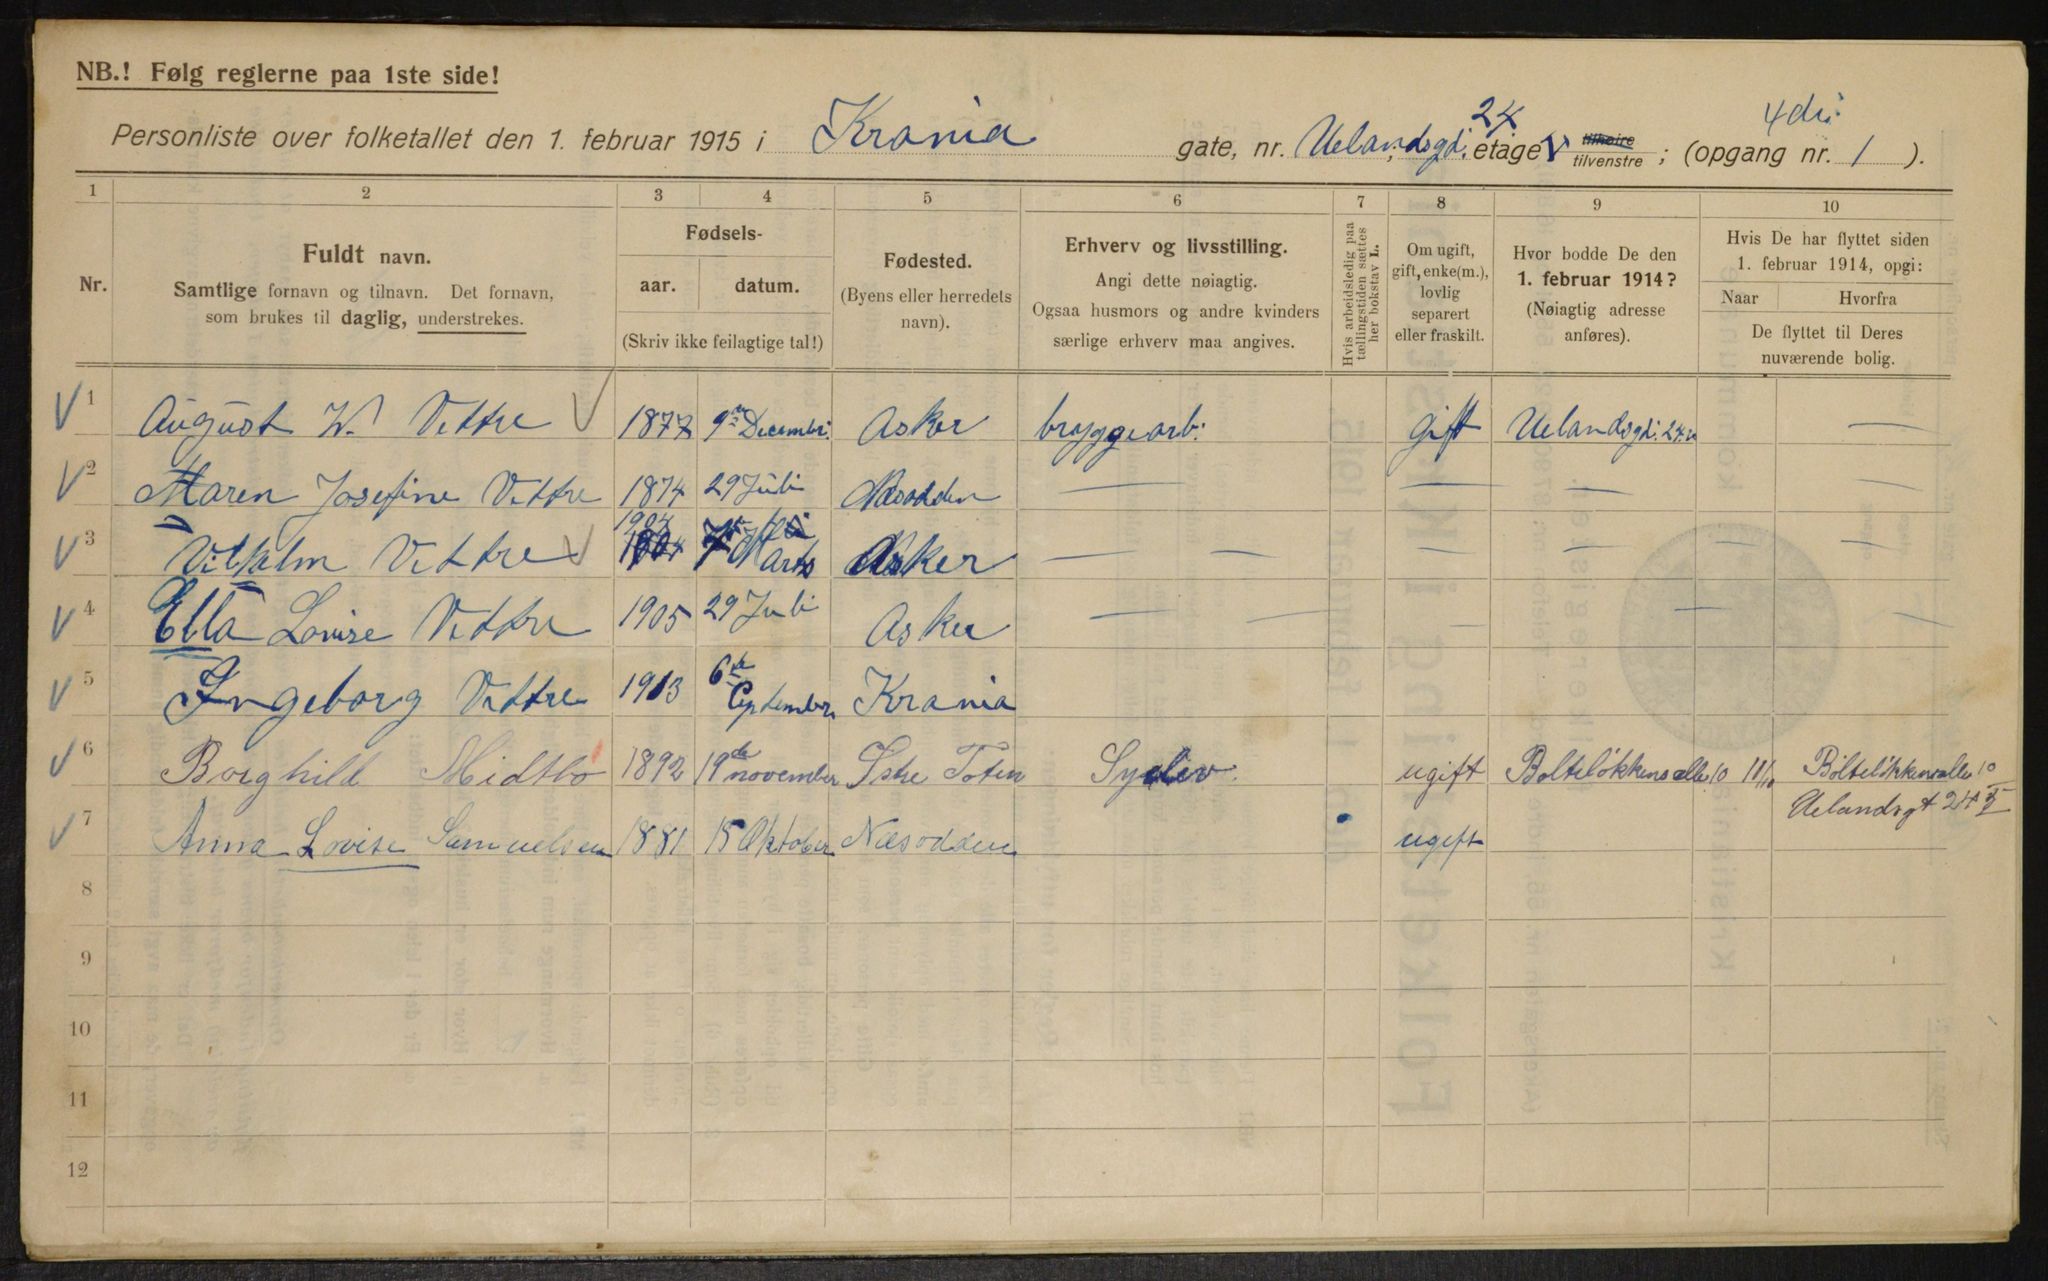 NB.! Følg reglerne paa 1ste side!
Personliste over folketallet den 1. februar 1915 i Krania gate, nr. Uelandsgd. 24 etage V tilhøire tilvenstre ; (opgang nr. 1 ). 4de
1 2 3 4 5 6 7 8 9 10
Nr. Fuldt navn. Samtlige fornavn og tilnavn. Det fornavn, som brukes til daglig, understrekes.
Fødsels- aar. datum. (Skriv ikke feilagtige tal!)
Fødested. (Byens eller herredets navn).
Erhverv og livsstilling. Angi dette nøiagtig. Ogsaa husmors og andre kvinders særlige erhverv maa angives.
Hvis arbeidsledig paa tællingstiden sættes her bokstav L.
Om ugift, gift, enke(m.), lovlig separert eller fraskilt.
Hvor bodde De den 1. februar 1914? (Nøiagtig adresse anføres).
Hvis De har flyttet siden 1. februar 1914, opgi: Naar Hvorfra De flyttet til Deres nuværende bolig.
1 August W. Vettre 1877 9de Decembr. Asker bryggearb. gift Uelandsgd. 24 —
2 Maren Josefine Vettre 1874 29 Juli Næsodden — — — — —
3 Vilhelm Vettre 1904 Marts Asker — — — — — —
4 Ella Lovise Vettre 1905 29 Juli Asker — — — — —
5 Ingeborg Vettre 1913 6te September Krania
6 Borghild Midtbø 1892 19de november Østre Toten Syelev ugift Bolteløkkens alle 10 Bolteløkkensalle 10
Uelandsgt 24
7 Anna Lovise Samuelsen 1881 15 Oktober Næsodden ugift
8
9
10
11
12